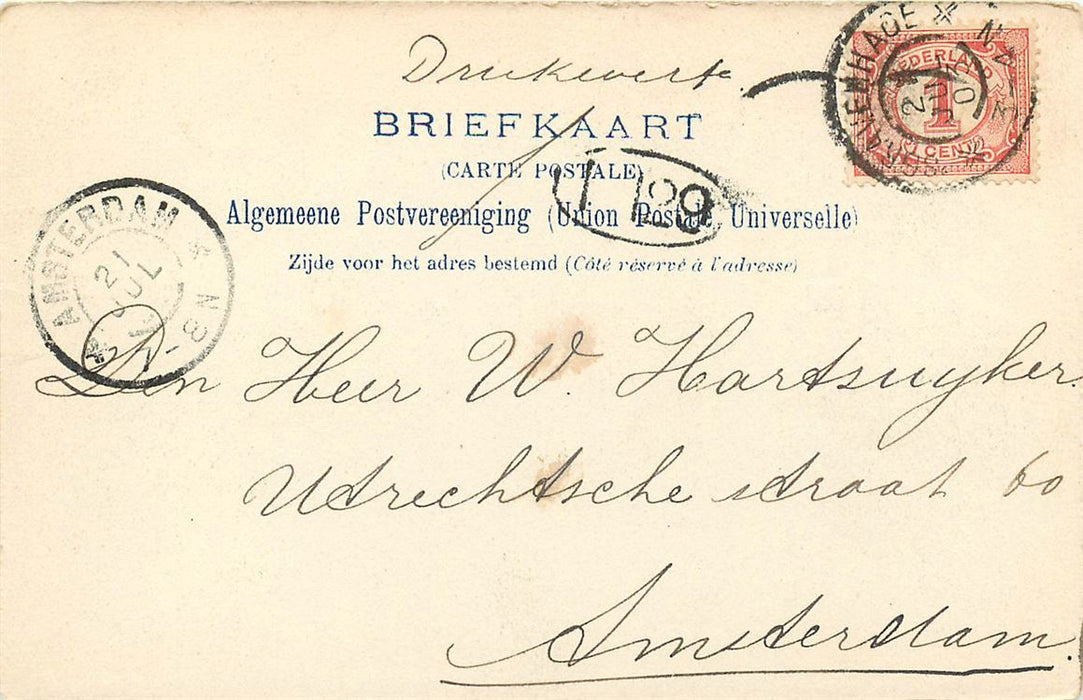 Drukwerk
BRIEFKAART
(CARTE POSTALE)
Algemeene Postvereeniging (Union Postale Universelle)
Zijde voor het adres bestemd (Côté réservé à l'adresse)
NEDERLAND
1
CENT
21 JUL
AMSTERDAM
21
JUL
129
Den Heer W. Hartsuyker.
Utrechtsche straat 60
Amsterdam.